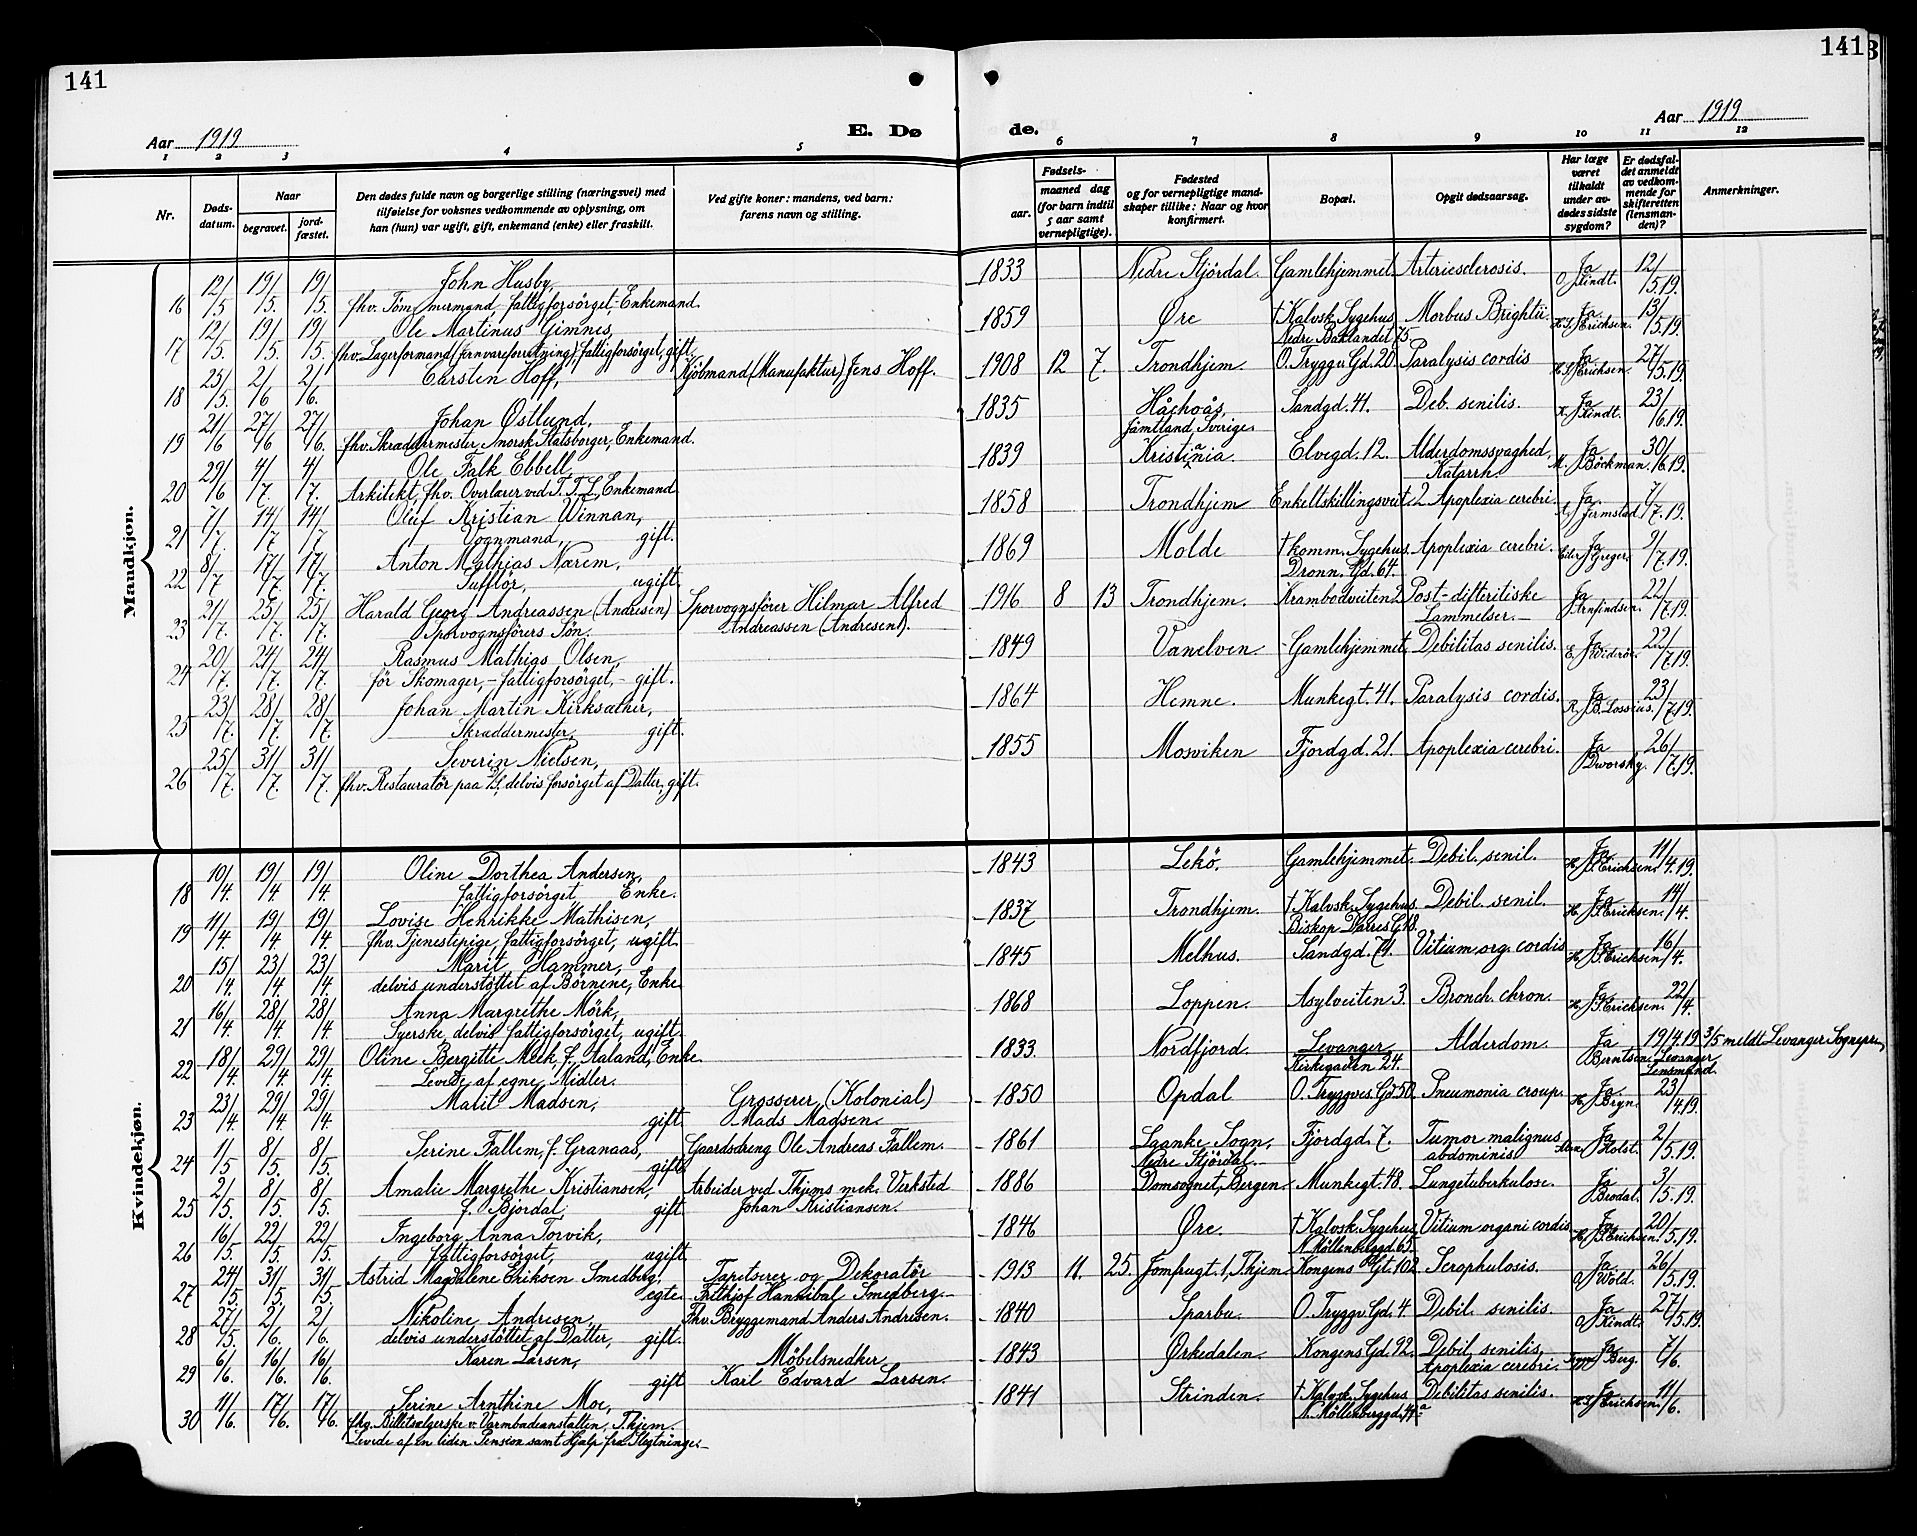 141
141
Aar 1919
E. Dø
de.
Aar 1919
1 2 3 4 5 6 7 8 9 10 11 12
Nr.
Døds-
datum.
Naar
begravet.
jord-
fæstet.
Den dødes fulde navn og borgerlige stilling (næringsvei) med
tilføielse for voksnes vedkommende av oplysning, om
han (hun) var ugift, gift, enkemand (enke) eller fraskilt.
Ved gifte koner: mandens, ved barn:
farens navn og stilling.
Fødsels-
aar.
maaned dag
(for barn indtil
5 aar samt
vernepligtige).
Fødested
og for vernepligtige mand-
skaper tillike: Naar og hvor
konfirmert.
Bopæl.
Opgit dødsaarsag.
Har læge
været
tilkaldt
under av-
dødes sidste
sygdom?
Er dødsfal-
det anmeldt
av vedkom-
mende for
skifteretten
(lensman-
den)?
Anmerkninger.
Mandkjøn.
16 12/5. 19/5. 19/5. John Husby, 1833 Nedre Stjördal. Gamlehjemmet. Arteriesclerosis. Ja 12/5.19.
fhv. Tömmermand, fattigforsörget, Enkemand. O. Kindt.
17 12/5. 19/5. 19/5. Ole Martinus Gimnes, 1859 Øre † Kalvsk. Sygehus Morbus Brightii. Ja 13/5.19.
fhv. Lagerformand (jernvareforretning) fattigforsörget, gift. Nedre Baklandet 75. H. S. Erichsen.
18 25/5. 2/6 2/6. Carsten Hoff, Kjöbmand (Manufaktur) Jens Hoff. 1908 12 7. Trondhjem. O. Tryggv. Gd. 20. Paralysis cordis Ja 27/5.19.
H. S. Erichsen.
19 21/6 27/6 27/6. Johan Østlund, 1835 Sandgd. 41. Deb. senilis. Ja 23/6.19.
fhv. Skræddermester, norsk Statsborger, Enkemand. Jämtland, Sverige. Kindt.
20 29/6 4/7. 4/7. Ole Falk Ebbell, 1839 Kristiania. Elvegd. 12. Alderdomssvaghed, Ja 30/6.19.
Arkitekt, fhv. Overlærer ved T. T. L., Enkemand Katarrh. M. Böckman.
21 7/7. 14/7 14/7 Oluf Kristian Winnan, 1858 Trondhjem Enkeltskillingsveit. 2 Apoplexia cerebri. Ja. 7/7.19.
Vognmand, gift. Jermstad.
22 8/7 17/7. 17/7. Anton Mathias Nærem, 1869 Molde † komm. Sygehus. Apoplexia cerebri. Ja 9/7.19.
Sufflör, ugift. Dronn. Gd. 64. Greger.
23 21/7. 25/7. 25/7. Harald Georg Andreassen (Andresen) Sporvognsförer Hilmar Alfred 1916 8 13 Trondhjem. Krambodveiten 2 Post-difteritiske Ja 22/7.19.
Sporvognsförers Sön. Andreassen (Andresen). Lammelser. Arnfindsen.
24 20/7. 24/7. 24/7. Rasmus Mathias Olsen, 1849 Vanelven Gamlehjemmet. Debilitas senilis. Ja 22/7.19.
för Skomager, - fattigforsörget, - gift. E. Wideröe.
25 23/7. 28/7. 28/7. Johan Martin Kirksæther, 1864 Hemne. Munkegt. 41. Paralysis cordis. Ja 23/7.19.
Skræddermester, gift. R. B. Lossius.
26 25/7. 31/7. 31/7. Severin Nielsen, 1855 Mosviken Fjordgd. 21. Apoplexia cerebri. Ja 26/7.19.
fhv. Restauratör paa D/S, delvis forsörget af Datter, gift. Dworsky.
Kvindekjøn.
18 10/4. 19/4. 19/4. Oline Dorthea Andersen, 1843 Lekö. Gamlehjemmet. Debil. senil. Ja 11/4.19.
fattigforsörget, Enke. H. S. Erichsen.
19 11/4. 19/4. 19/4. Lovise Henrikke Mathisen, 1837 Trondhjem. † Kalvsk. Sygehus. Debil. senil. Ja 14/4.
fhv. Tjenestepige, fattigforsörget, ugift. Biskop Darres G. 18. H. S. Ericksen.
20 15/4. 23/4. 23/4. Marit Hammer, 1845 Melhus. Sandgd. 71. Vitium org. cordis Ja 16/4.
delvis understöttet af Börnene, Enke H. S. Ericksen
21 16/4. 28/4 28/4 Anna Margrethe Mörk, 1868 Loppen. Asylveiten 3. Bronch. chron. Ja 22/4.
Syerske, delvis fattigforsörget, ugift. H. S. Ericksen.
22 18/4. 29/4. 29/4. Oline Bergitte Meek, f. Aaland, Enke. 1833. Nordfjord. Levanger Alderdom. Ja 19/4.19. 3/5 meldt Levanger Sognepr.
Levede af egne Midler. Kirkegaden 24. Berntsen. Levanger
Lensmand.
23 23/4 29/4. 29/4. Marit Madsen, Grosserer (Kolonial) 1850 Opdal O. Tryggves. Gd. 50. Pneumonia croup. Ja 23/4.19.
gift. Mads Madsen. H. Bryn.
24 1/5 8/5. 8/5. Serine Fallem, f. Granaas, Gaardsdreng Ole Andreas Fallem. 1861 Laanke Sogn, Fjordgd. 7. Tumor malignus Ja 2/5.19.
gift. Nedre Stjördal. abdominis Holst.
25 2/5. 8/5. 8/5. Amalie Margrethe Kristiansen, Arbeider ved Thjems mek. Verksted 1886 Domsognet, Bergen. Munkegt. 48. Lungetuberkulose. Ja 3/5.19.
f. Bjordal, gift. Johan Kristiansen. Brodal.
26 16/5. 22/5. 22/5. Ingeborg Anna Torvik, 1846 Øre. † Kalvsk. Sygehus, Vitium organi cordis, Ja 20/5.19.
fattigforsörget, ugift. N. Möllenberggd. 65. H. S. Erichsen.
27 24/5. 31/5. 31/5. Astrid Magdalene Eriksen Smedberg, Tapetserer og Dekoratör 1913 11. 25. Jomfrugt. 1, Thjem Kongens Gt. 102. Scrophulosis. Ja. 26/5.19.
egte. Frithjof Hannibal Smedberg. O. Wold.
28 27/5. 2/6. 2/6. Nikoline Andresen, Fhv. Bryggemand Anders Andresen. 1840 Sparbu. O. Tryggv. Gd. 4. Debil. senilis. Ja 27/5.19.
delvis understöttet af Datter, gift. O. Kindt.
29 6/6. 16/6. 16/6. Karen Larsen, Möbelsnedker 1843 Ørkedalen. Kongens Gd. 92. Debil. senilis, Ja 7/6.
gift Karl Edvard Larsen. Apoplexia cerebri. Berg.
30 11/6. 17/6. 17/6. Serine Arnthine Moe, 1841 Strinden. † Kalvsk. Sygehus Debilitas senilis. Ja 11/6.
fhv. Billetsælgerske v. Varmbadeanstalten, Thjem. N. Möllenberggd. 41a H. S. Erichsen.
Levede af en liden Pension samt Hjælp fra Slegtninge.